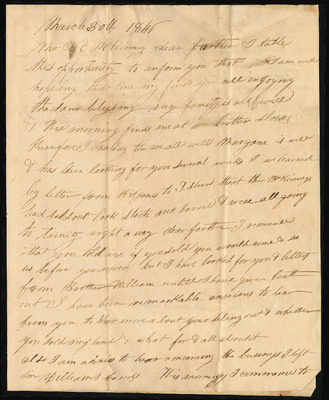 March 30th 1846
Mr C McKinney dear farther I take
this opportunity to inform you that I am well
hopeing these line may find you all enjoying
the same blessing my family is all well
& this morning finds me at brother
therefore I can say the are all well Maryann is well
& has been looking for you several weeks I was learned
by letter from to I that the McKinneys
had sold out lock stock and barrel & were all going
to trinity right a way dear farther I
that you told me if you sold you would come & see
us before you moved but I have looked for you & letters
from Brother William untill I have given boath
out I have been remarkable anxious to hear
from you to know more about your selling out & whether
you sold my land & what for & all about it
also I am anxious to hear concerning the business I left
in Williams hands this morning I commence to